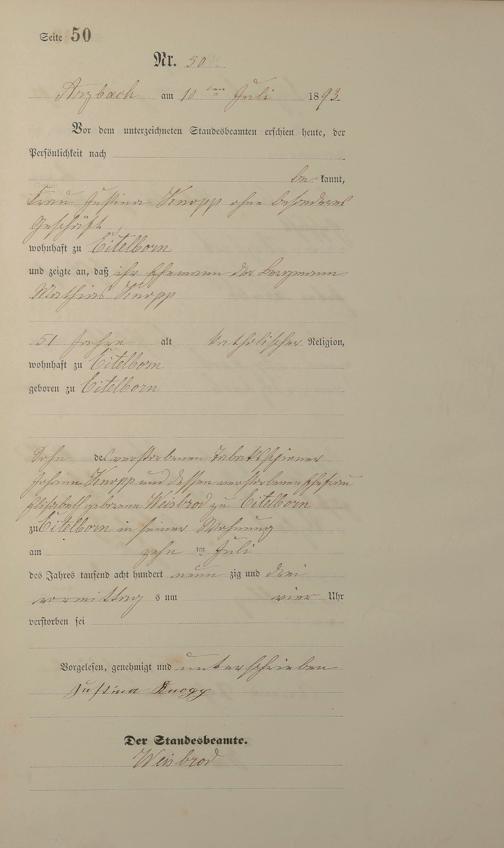 Seite 50
Nr. 50
Arzbach am 10 ten Juli 1893.
Vor dem unterzeichneten Standesbeamten erschien heute, der
Persönlichkeit nach
be kannt,
Frau Justina Knopp ohne besonderes
Geschäft
wohnhaft zu Eitelborn
und zeigte an, daß ihr Ehemann der Bergmann
Mathias Knopp
51 Jahre alt katholischer Religion,
wohnhaft zu Eitelborn
geboren zu Eitelborn
Sohn des verstorbenen
Johann Knopp und dessen verstorbenen Ehefrau
Elisabeth geborene Weisbrod zu Eitelborn
zu Eitelborn in seiner Wohnung
am zehn ten Juli
des Jahres tausend acht hundert neun zig und drei
vormittag s um vier Uhr
verstorben sei
Vorgelesen, genehmigt und unterschrieben
Justina Knopp
Der Standesbeamte.
Weisbrod